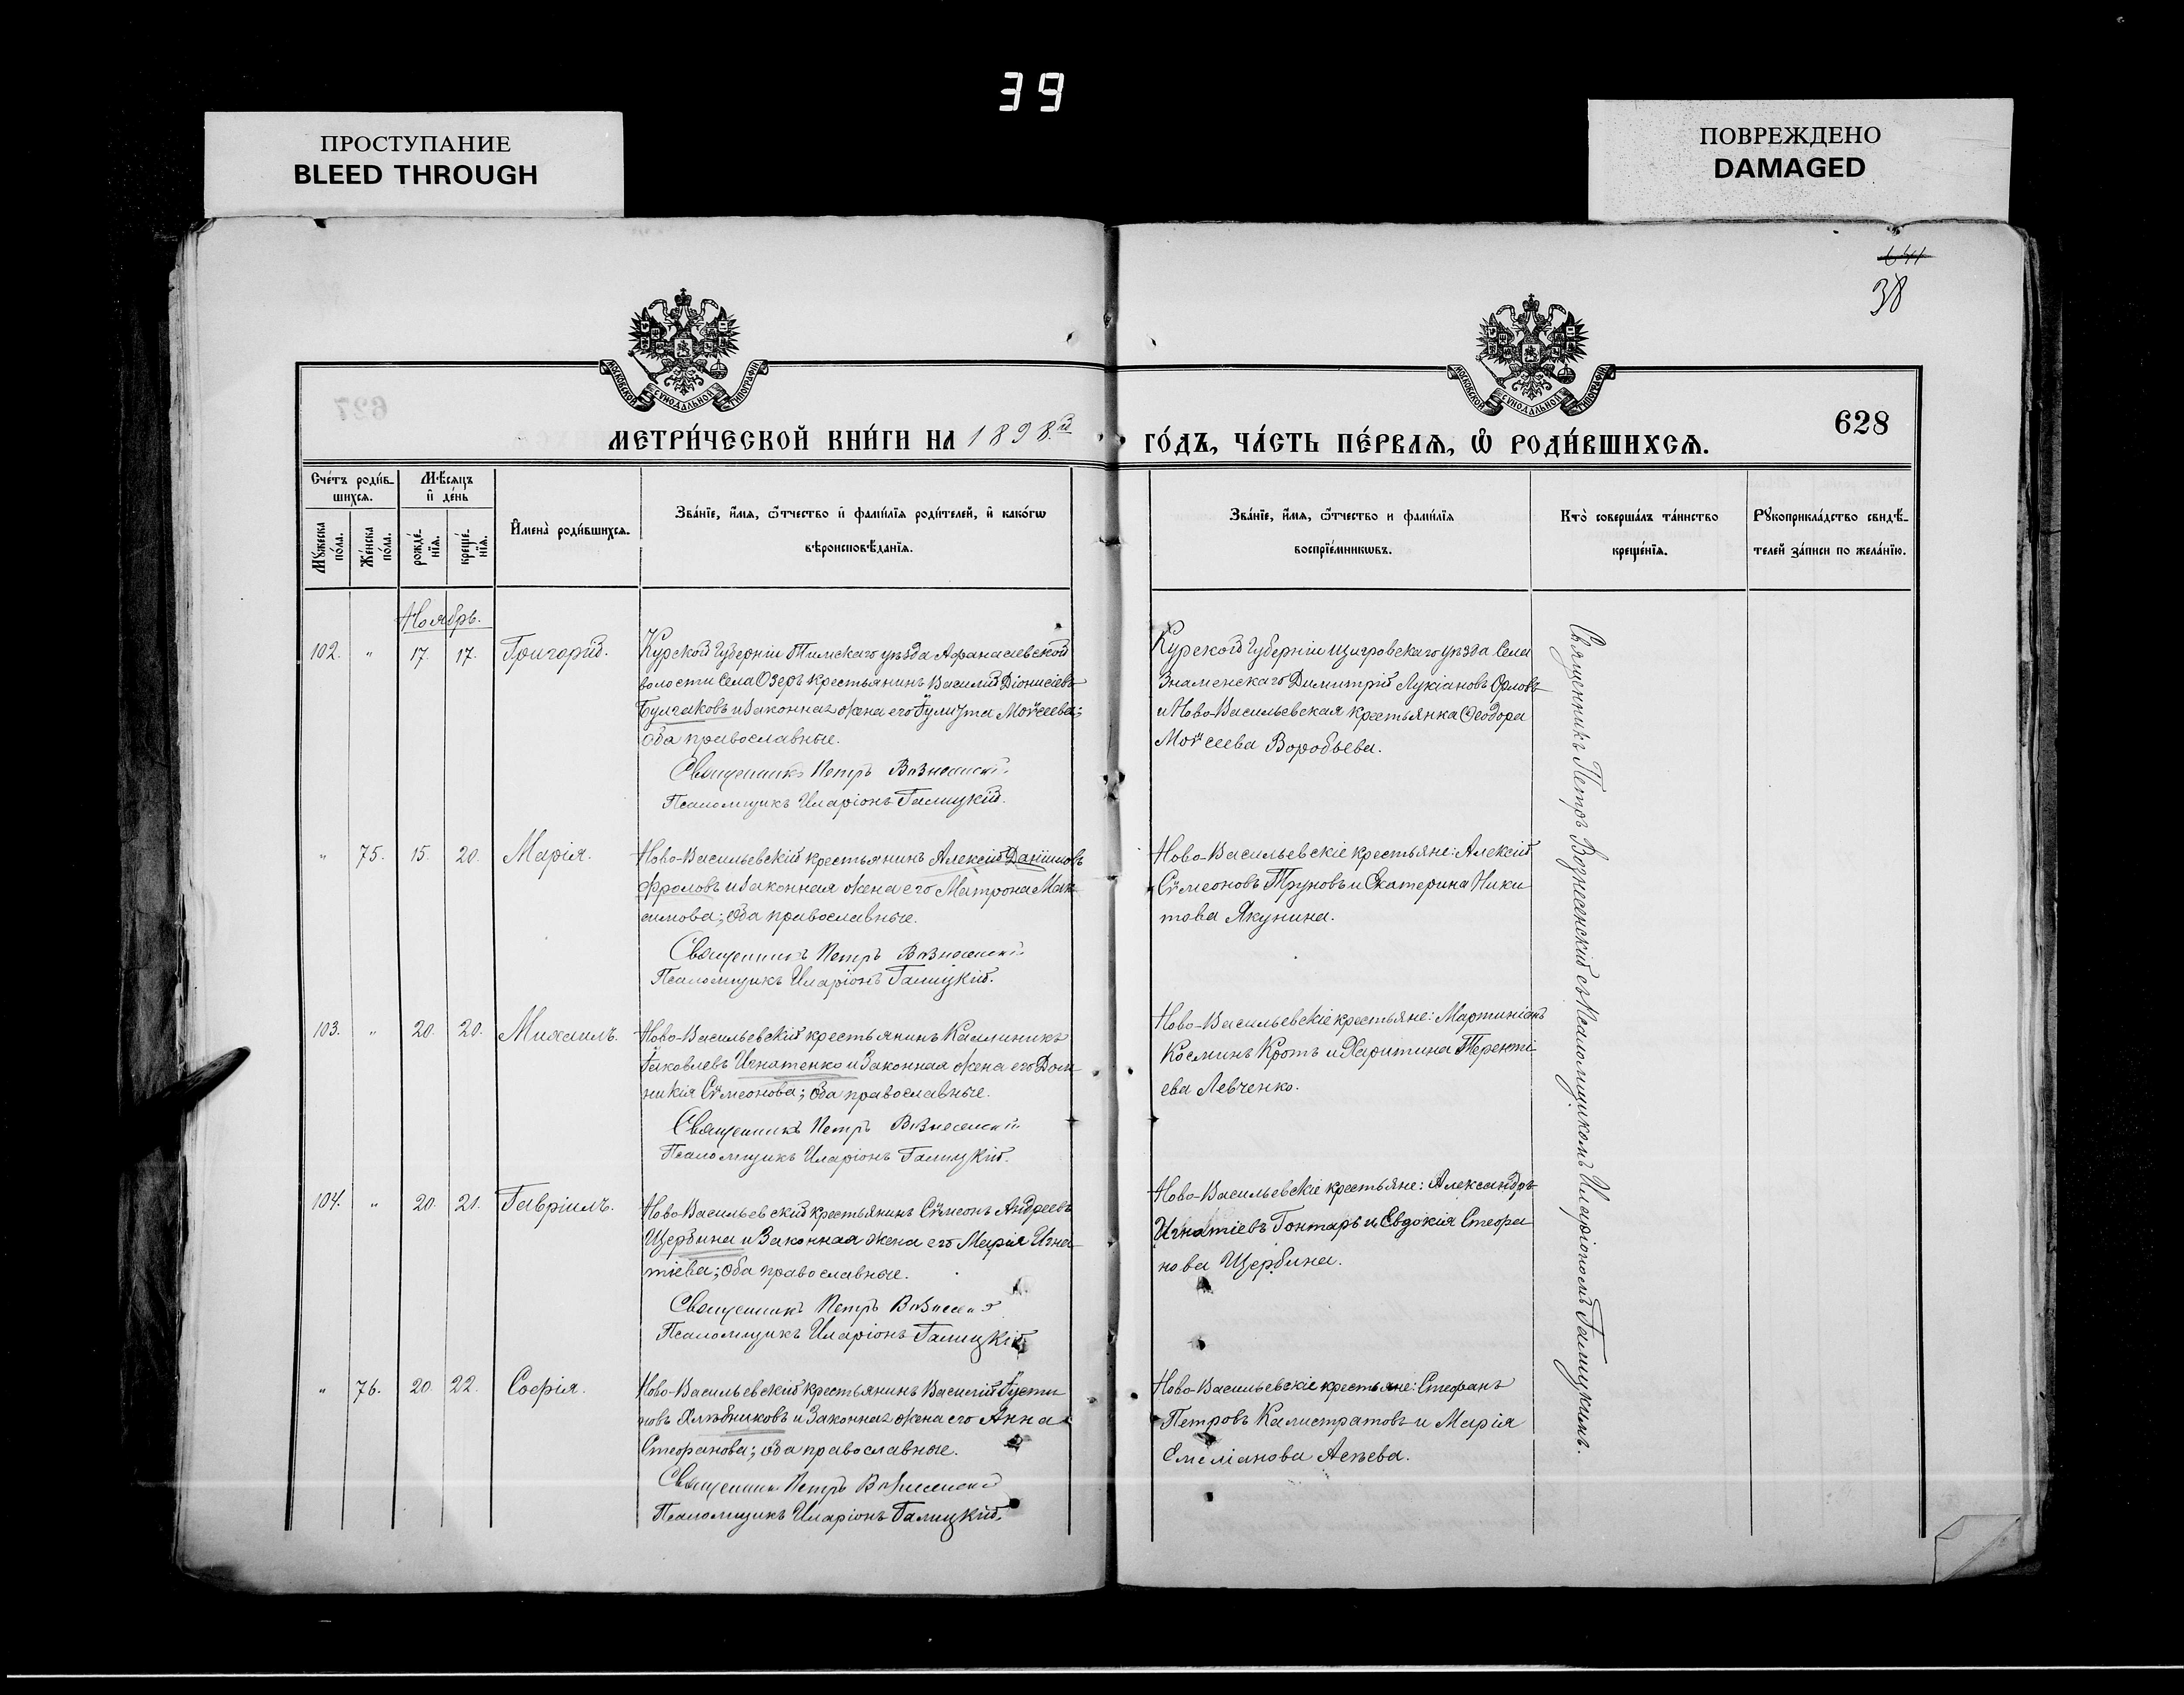 39
ПРОСТУПАНИЕ
BLEED THROUGH
ПОВРЕЖДЕНО
DAMAGED
38
МОСКОВСКОЙ СѴНОДАЛЬНОЙ ТИПОГРАФІИ
МОСКОВСКОЙ СѴНОДАЛЬНОЙ ТИПОГРАФІИ
627
628
МЕТРИ́ЧЕСКОЙ КНИ́ГИ НА 1898й
ГО́ДЪ, ЧА́СТЬ ПЕ́РВАѦ, Ѡ҆ РОДИ́ВШИХСѦ.
Сче́тъ роди́в-
шихсѧ.
Мꙋ́жеска
по́ла.
Же́нска
по́ла.
Мѣ́сѧцъ
и҆ де́нь
рожде́-
нїѧ.
креще́-
нїѧ.
И҆мена̀ роди́вшихсѧ.
Зва́нїе, и҆́мѧ, ѻ҆́тчество и҆ фами́лїѧ роди́телей, и҆ како́гѡ
вѣроисповѣ́данїѧ.
Зва́нїе, и҆́мѧ, ѻ҆́тчество и фами́лїѧ
воспрїе́мникѡвъ.
Кто̀ соверша́лъ та́инство
креще́нїѧ.
Рꙋкоприкла́дство свидѣ́-
телей за́писи по жела́нїю.
Ноябрь.
102. " 17. 17. Григорій.
Курской Губерніи Тимскаго уѣзда Афанасіевской
волости села Озеръ крестьянинъ Василій Діонисіевъ
Булгаковъ и законная жена его Іулитта Моѵсеева;
оба православные.
Священникъ Петръ Вознесенскій.
Псаломщикъ Иларіонъ Галицкій.
Курской Губерніи Щигровскаго уѣзда села
Знаменскаго Димитрій Лукіановъ Орловъ
и Ново-Васильевская крестьянка Ѳеодора
Моѵсеева Воробьева.
" 75. 15. 20. Марія.
Ново-Васильевскій крестьянинъ Алексій Даніиловъ
Фроловъ и законная жена его Матрона Мак-
симова; оба православные.
Священникъ Петръ Вознесенскій
Псаломщикъ Иларіонъ Галицкій.
Ново-Васильевскіе крестьяне: Алексій
Сѵмеоновъ Труновъ и Екатерина Ники
това Якунина.
103. " 20. 20. Михаилъ.
Ново-Васильевскій крестьянинъ Каллиникъ
Іаковлевъ Игнатенко и законная жена его Дом-
никія Сѵмеонова; оба православные.
Священникъ Петръ Вознесенскій
Псаломщикъ Иларіонъ Галицкій.
Ново-Васильевскіе крестьяне: Мартиніанъ
Косминъ Кротъ и Харитина Теренті-
ева Левченко.
104. " 20. 21. Гавріилъ.
Ново-Васильевскій крестьянинъ Сѵмеонъ Андреевъ
Щербина и законная жена его Марія Игна-
тіева; оба православные.
Священникъ Петръ Вознесенскій
Псаломщикъ Иларіонъ Галицкій
Ново-Васильевскіе крестьяне: Александръ
Игнатіевъ Гонтарь и Евдокія Стефа
нова Щербина.
" 76. 20. 22. Софія.
Ново-Васильевскій крестьянинъ Василій Іусти
новъ Хлѣбниковъ и законная жена его Анна
Стефанова; оба православные.
Священникъ Петръ Вознесенскій
Псаломщикъ Иларіонъ Галицкій.
Ново-Васильевскіе крестьяне: Стефанъ
Петровъ Калистратовъ и Марія
Емеліанова Асѣева.
Священникъ Петръ Вознесенскій съ Псаломщикомъ Иларіономъ Галицкимъ.